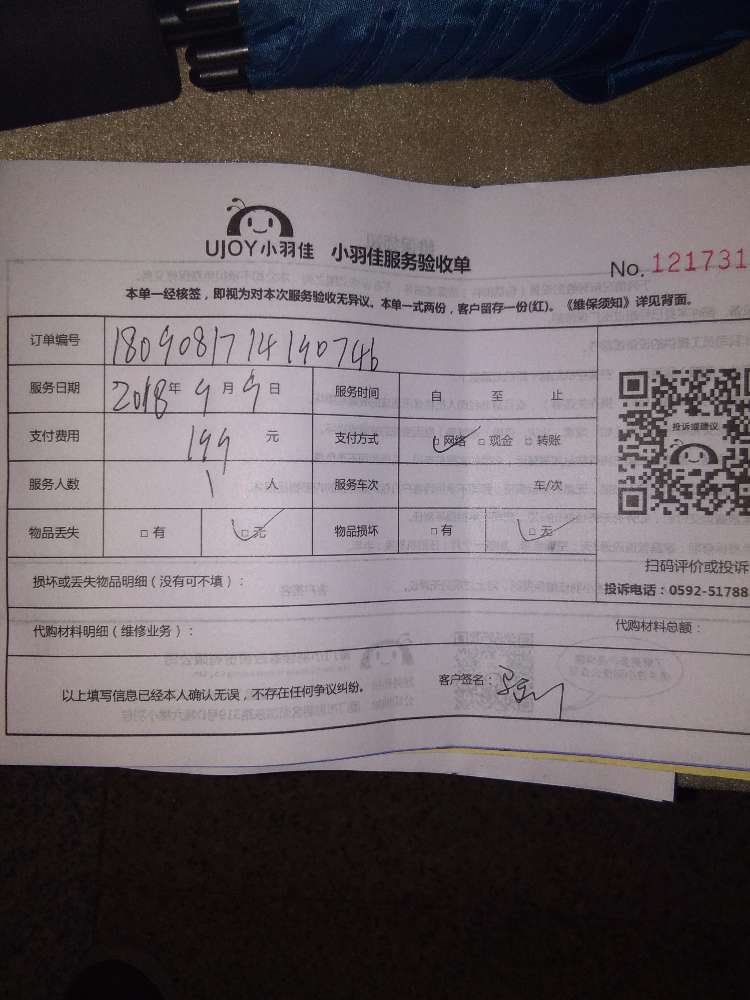 UJOY小羽佳 小羽佳服务验收单
No. 121731
本单一经核签，即视为对本次服务验收无异议。本单一式两份，客户留存一份(红)。《维保须知》详见背面。
订单编号 1809081714190746
服务日期 2018年 9月 9日 服务时间 自 至 止
支付费用 199 元 支付方式 □网络 □现金 □转账
服务人数 1 人 服务车次 车/次
物品丢失 □有 □无 物品损坏 □有 □无
投诉或建议
扫码评价或投诉
投诉电话：0592-51788
损坏或丢失物品明细（没有可不填）：
代购材料明细（维修业务）： 代购材料总额：
以上填写信息已经本人确认无误，不存在任何争议纠纷。 客户签名：